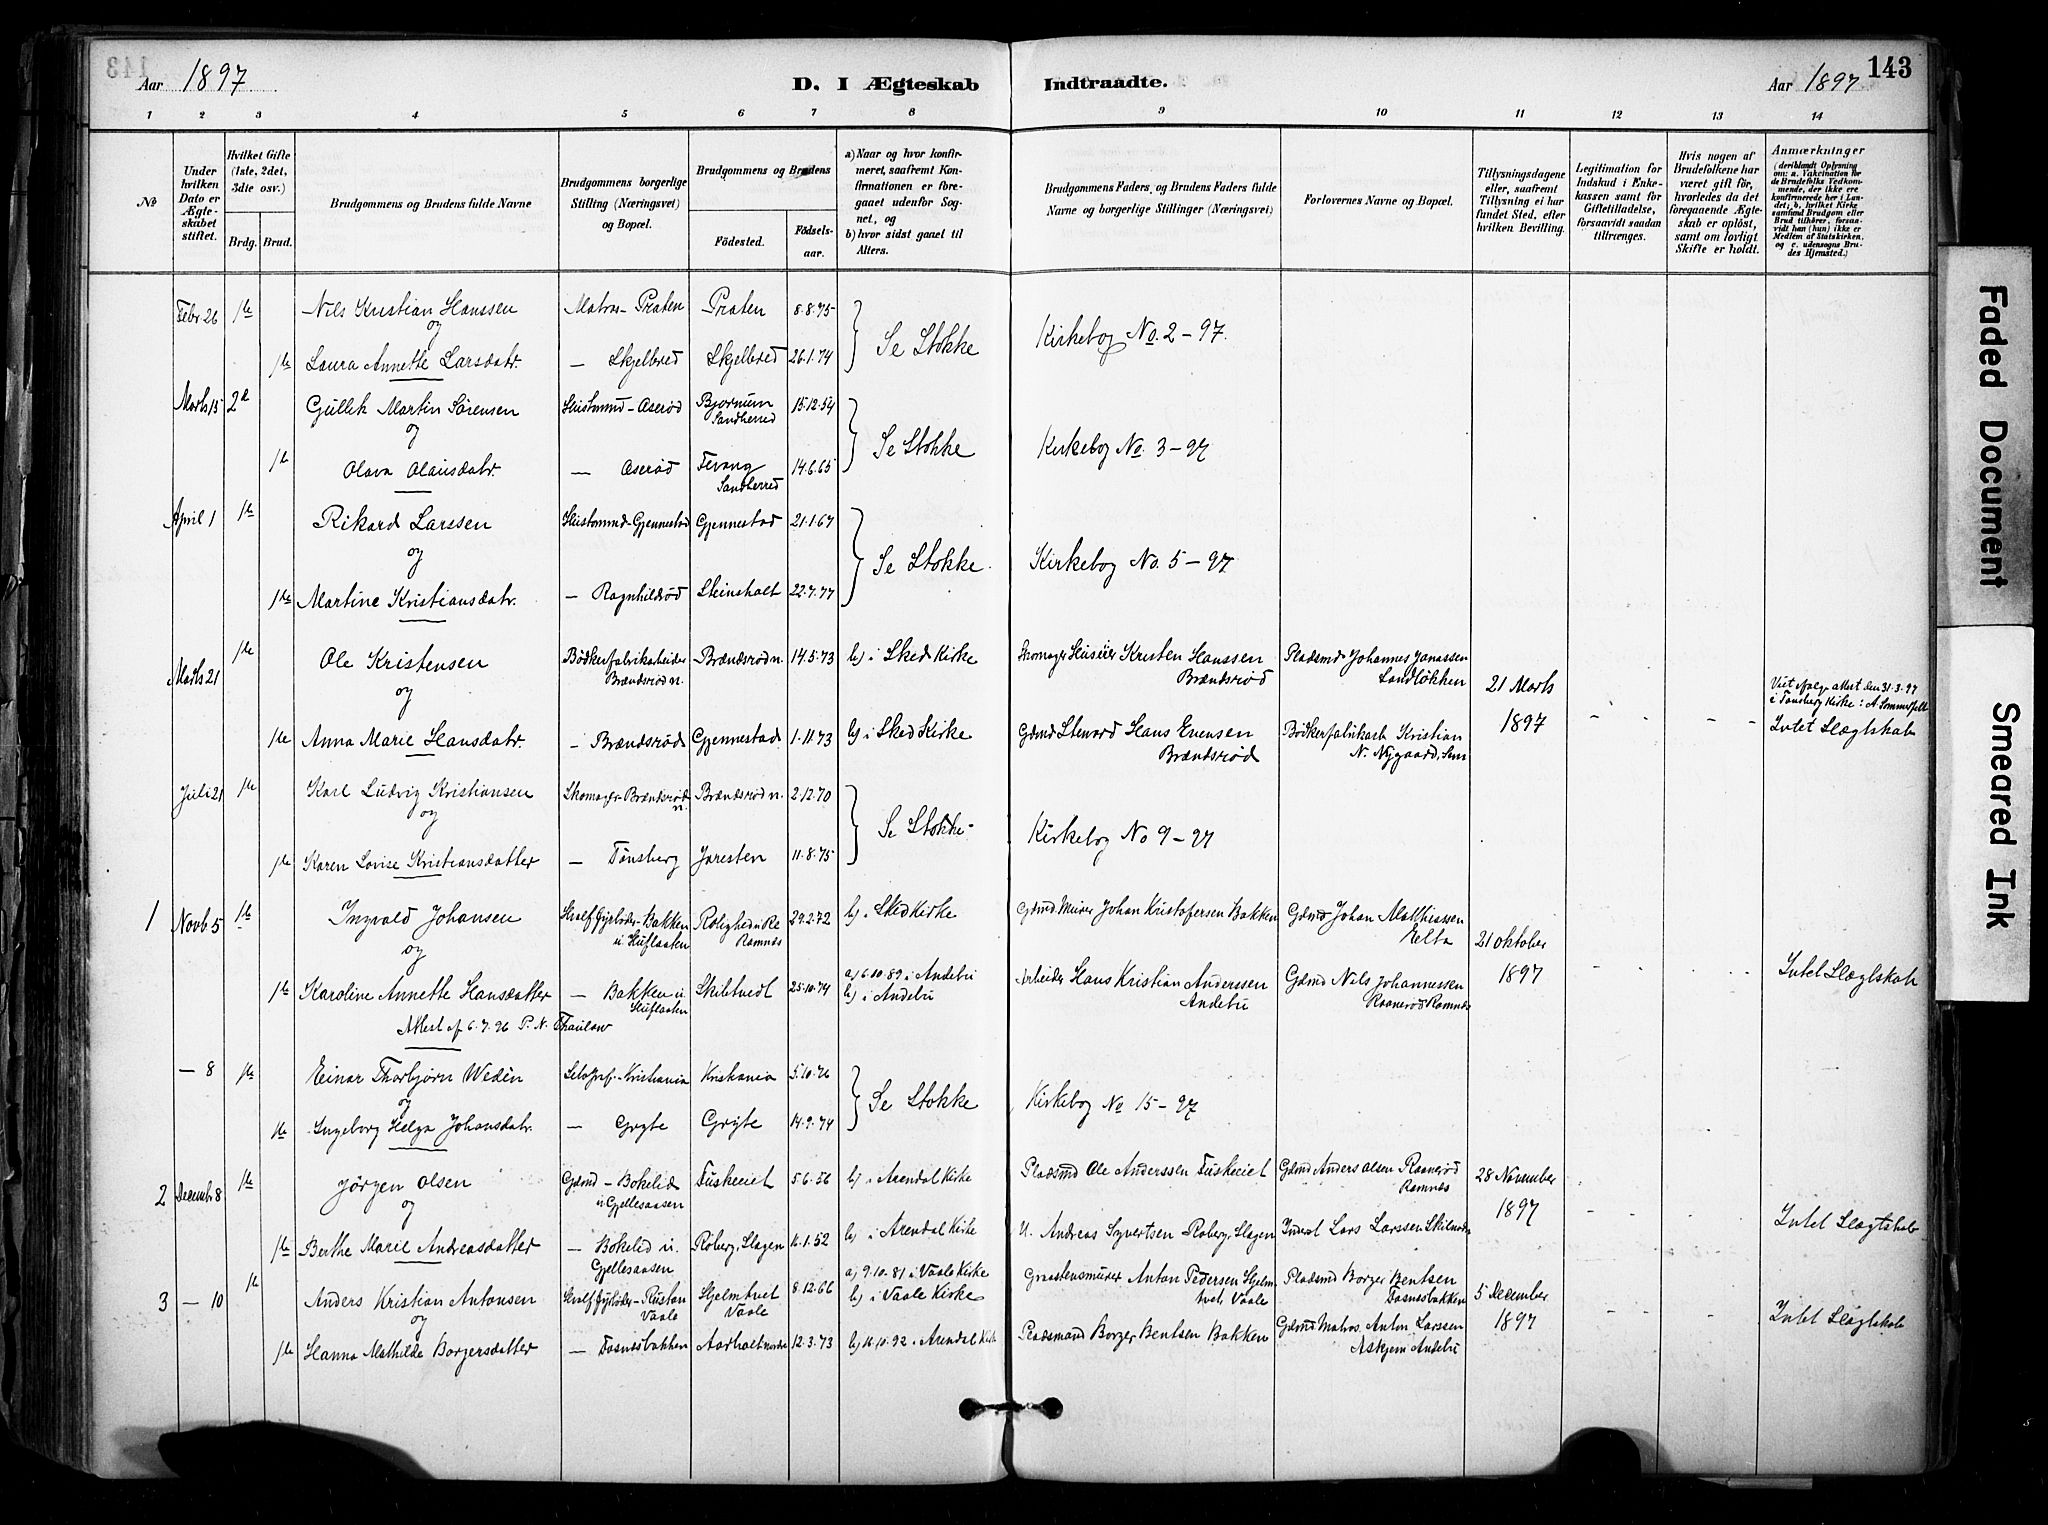 143
Aar 1897
D. I Ægteskab Indtraadte.
Aar 1897
1 2 3 4 5 6 7 8 9 10 11 12 13 14
No
Under hvilken Dato er Ægteskabet stiftet.
Hvilket Gifte (1ste, 2det, 3die osv.)
Brdg. Brud.
Brudgommens og Brudens fulde Navne
Brudgommens borgerlige Stilling (Næringsvei) og Bopæl.
Brudgommens og Brudens
Fødested.
Fødselsaar.
a) Naar og hvor konfirmeret, saafremt Konfirmationen er foregaaet udenfor Sognet, og
b) hvor sidst gaaet til Alters.
Brudgommens Faders, og Brudens Faders fulde Navne og borgerlige Stillinger (Næringsvei)
Forlovernes Navne og Bopæl.
Tillysningsdagene eller, saafremt Tillysning ei har fundet Sted, efter hvilken Bevilling.
Legitimation for Indskud i Enkekassen samt for Giftetilladelse, forsaavidt saadan tiltrænges.
Hvis nogen af Brudefolkene har været gift før, hvorledes da det foregaaende Ægteskab er opløst, samt om lovligt Skifte er holdt.
Anmærkninger
(deriblandt Oplysning om: a. Vakcination for de Brudefolks Vedkommende, der ikke ere konfirmerede her i Landet; b. hvilket Kirkesamfund Brudgom eller Brud tilhører, forsaavidt han (hun) ikke er Medlem af Statskirken, og c. udensogns Brudes Hjemsted.)
Febr 26 1ste Nils Kristian Hanssen Matros - Praten Praten 8.8.75
og Se Stokke Kirkebog No. 2 - 97.
1ste Laura Annette Larsdatr. — Skjelbred Skjelbred 26.1.74
Marts 15 2d Gullik Martin Sørensen Husmand - Aserød Bjørnum Sandherred 15.12.54
og Se Stokke Kirkebog No. 3 - 97
1ste Olava Olausdatr. — Aserød Fevang Sandherred 14.6.65
April 1 1ste Rikard Larssen Husmand - Gjennestad Gjennestad 21.1.67
og Se Stokke Kirkebog No. 5 - 97
1ste Martine Kristiansdatr. — Ragnhildsrød Steinsholt 22.7.77
Marts 21 1ste Ole Kristensen Bødkerfabrikarbeider Brændsrød n. Brændsrød n. 14.5.73 b) i Sked Kirke Skomager Huseier Kristen Hanssen Brændsrød Pladsmd Johannes Janassen Sandløkken 21 Marts
og
Viet ifølge attest den 31.3.97 i Tønsberg Kirke: A Sommerfelt
1ste Anna Marie Hansdatr. — Brændsrød Gjennestad 1.11.73 b) i Sked Kirke Gdmd Steward Hans Evensen Brændsrød Bødkerfabrikarb Kristian N. Nygaard, Sem 1897 - - - - Intet Slægtskab
Juli 21 1ste Karl Ludvig Kristiansen Skomager - Brændsrød n. Brændsrød n. 2.12.70
og Se Stokke Kirkebog No 9 - 97
1ste Karen Lovise Kristiansdatter — Tønsberg Jaresten 11.8.75
1 Novb 5 1ste Ingvald Johansen Bakken u Huflaaten Rolighed i Re Ramnæs 29.2.72 b) i Sked Kirke Gdmd Murer Johan Kristofersen Bakken Gdmd Johan Matthiassen 21 oktober
og
1ste Karoline Annette Hansdatter — Bakken u Huflaaten Skiltvedt 25.10.74 a) 6.10.89 i Andebu b) i Andebu Arbeider Hans Kristian Anderssen Andebu Gdmd Nils Johannessen Raanerød Ramnæs 1897 Intet Slægtskab
Attest af 6.7.96 P. N. Thaulow
— 8 1ste Einar Thorbjørn Wedén - Kristiania Kristiania 5.10.76
og Se Stokke Kirkebog No 15 - 97
1ste Ingeborg Helga Johansdatr. — Gryte Gryte 14.9.74
2 Decemb 8 1ste Jörgen Olsen Gdmd - Bokelid u Gjellesaasen Fuskeeiet 5.6.56 b) i Arendal Kirke Pladsmd Ole Anderssen Fuskeeiet Gdmd Anders Olsen Raanerød Ramnæs 28 November
og
1ste Berthe Marie Andreasdatter — Bokelid u. Gjellesaasen Roberg, Slagen 16.1.52 b) i Arendal Kirke U. Andreas Syvertsen Roberg, Slagen Inderst Lars Larssen 1897 Intet Slægtskab
3 — 10 1ste Anders Kristian Antonsen Vaale Hjelmtvet Vaale 8.12.66 a) 9.10.81 i Vaale Kirke b) i Vaale Kirke Graastensmurer Anton Pedersen Hjelmtvet, Vaale Pladsmd Borger Bentsen Fosnesbakken 5 December
og
1ste Hanna Mathilde Borgersdatter — Fosnesbakken Aarholt nordre 12.3.73 b) 16.10.92 i Arendal Kirke Pladsmand Borger Bentsen Bakken Gdmd Matros. Anton Larssen Askjem Andebu 1897 Intet Slægtskab
Faded Document
Smeared Ink